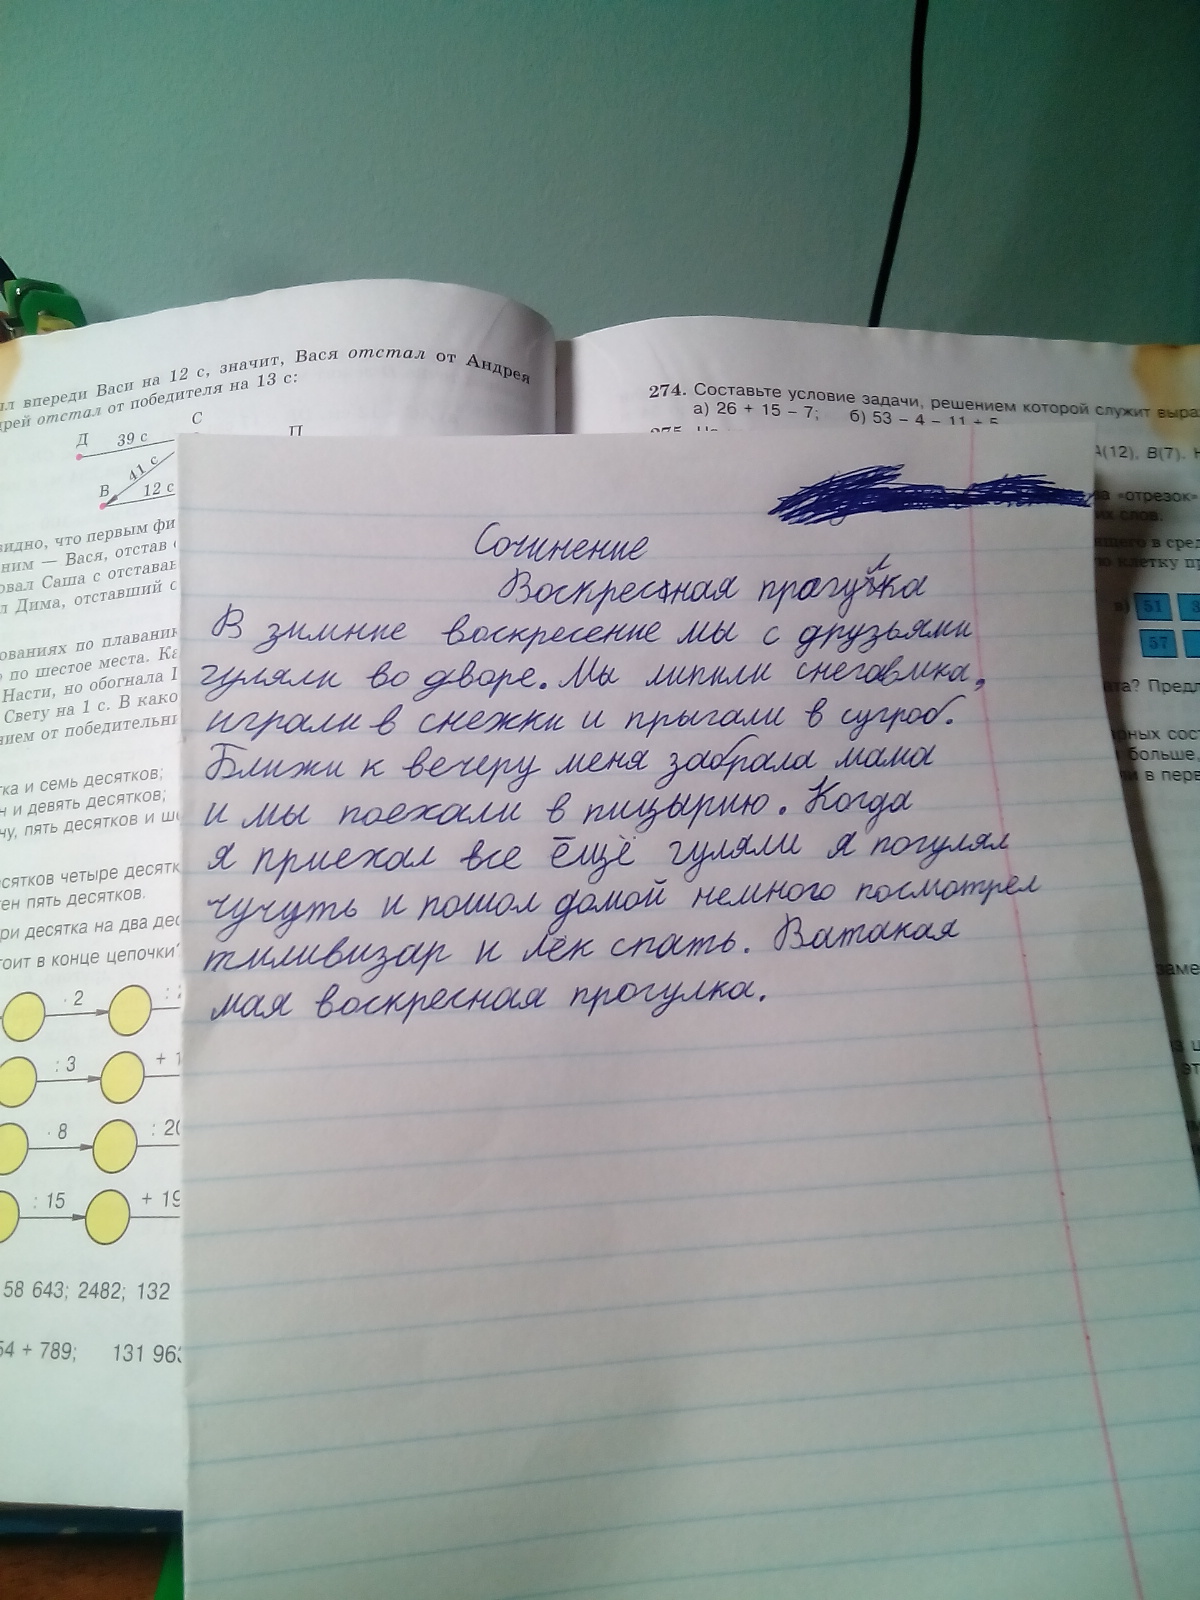 был впереди Васи на 12 с, значит, Вася отстал от Андрея
отстал от победителя на 13 с:
Д 39 с С П
41 с
В 12 с
видно, что первым
ним — Вася, отстав
Саша с
Дима, отставший с
по плавани
по шестое места.
Насти, но обогнала
Свету на 1 с. В
от
и семь десятков;
н и девять десятков;
пять десятков и
десятков четыре
пять десятков.
три десятка на два
стоит в конце цепочки
· 2 :
: 3 + 1
· 8 : 20
: 15 + 19
58 643; 2482; 132
54 + 789; 131 963
274. Составьте условие задачи, решением которой служит
а) 26 + 15 – 7; б) 53 – 4 – 11 + 5
275.
A(12), B(7).
«отрезок»
слов.
в
клетку
в) 51 3
57
больше,
в
Сочинение
Воскресная прагулка
В зимние воскресение мы с друзьями
гуляли во дворе. Мы липили снеговика,
играли в снежки и прыгали в сугроб.
Ближи к вечеру меня забрала мама
и мы поехали в пицырию. Когда
я приехал все ёщё гуляли я погулял
чучуть и пошол домой немного посмотрел
тиливизар и лёк спать. Ватакая
мая воскресная прогулка.